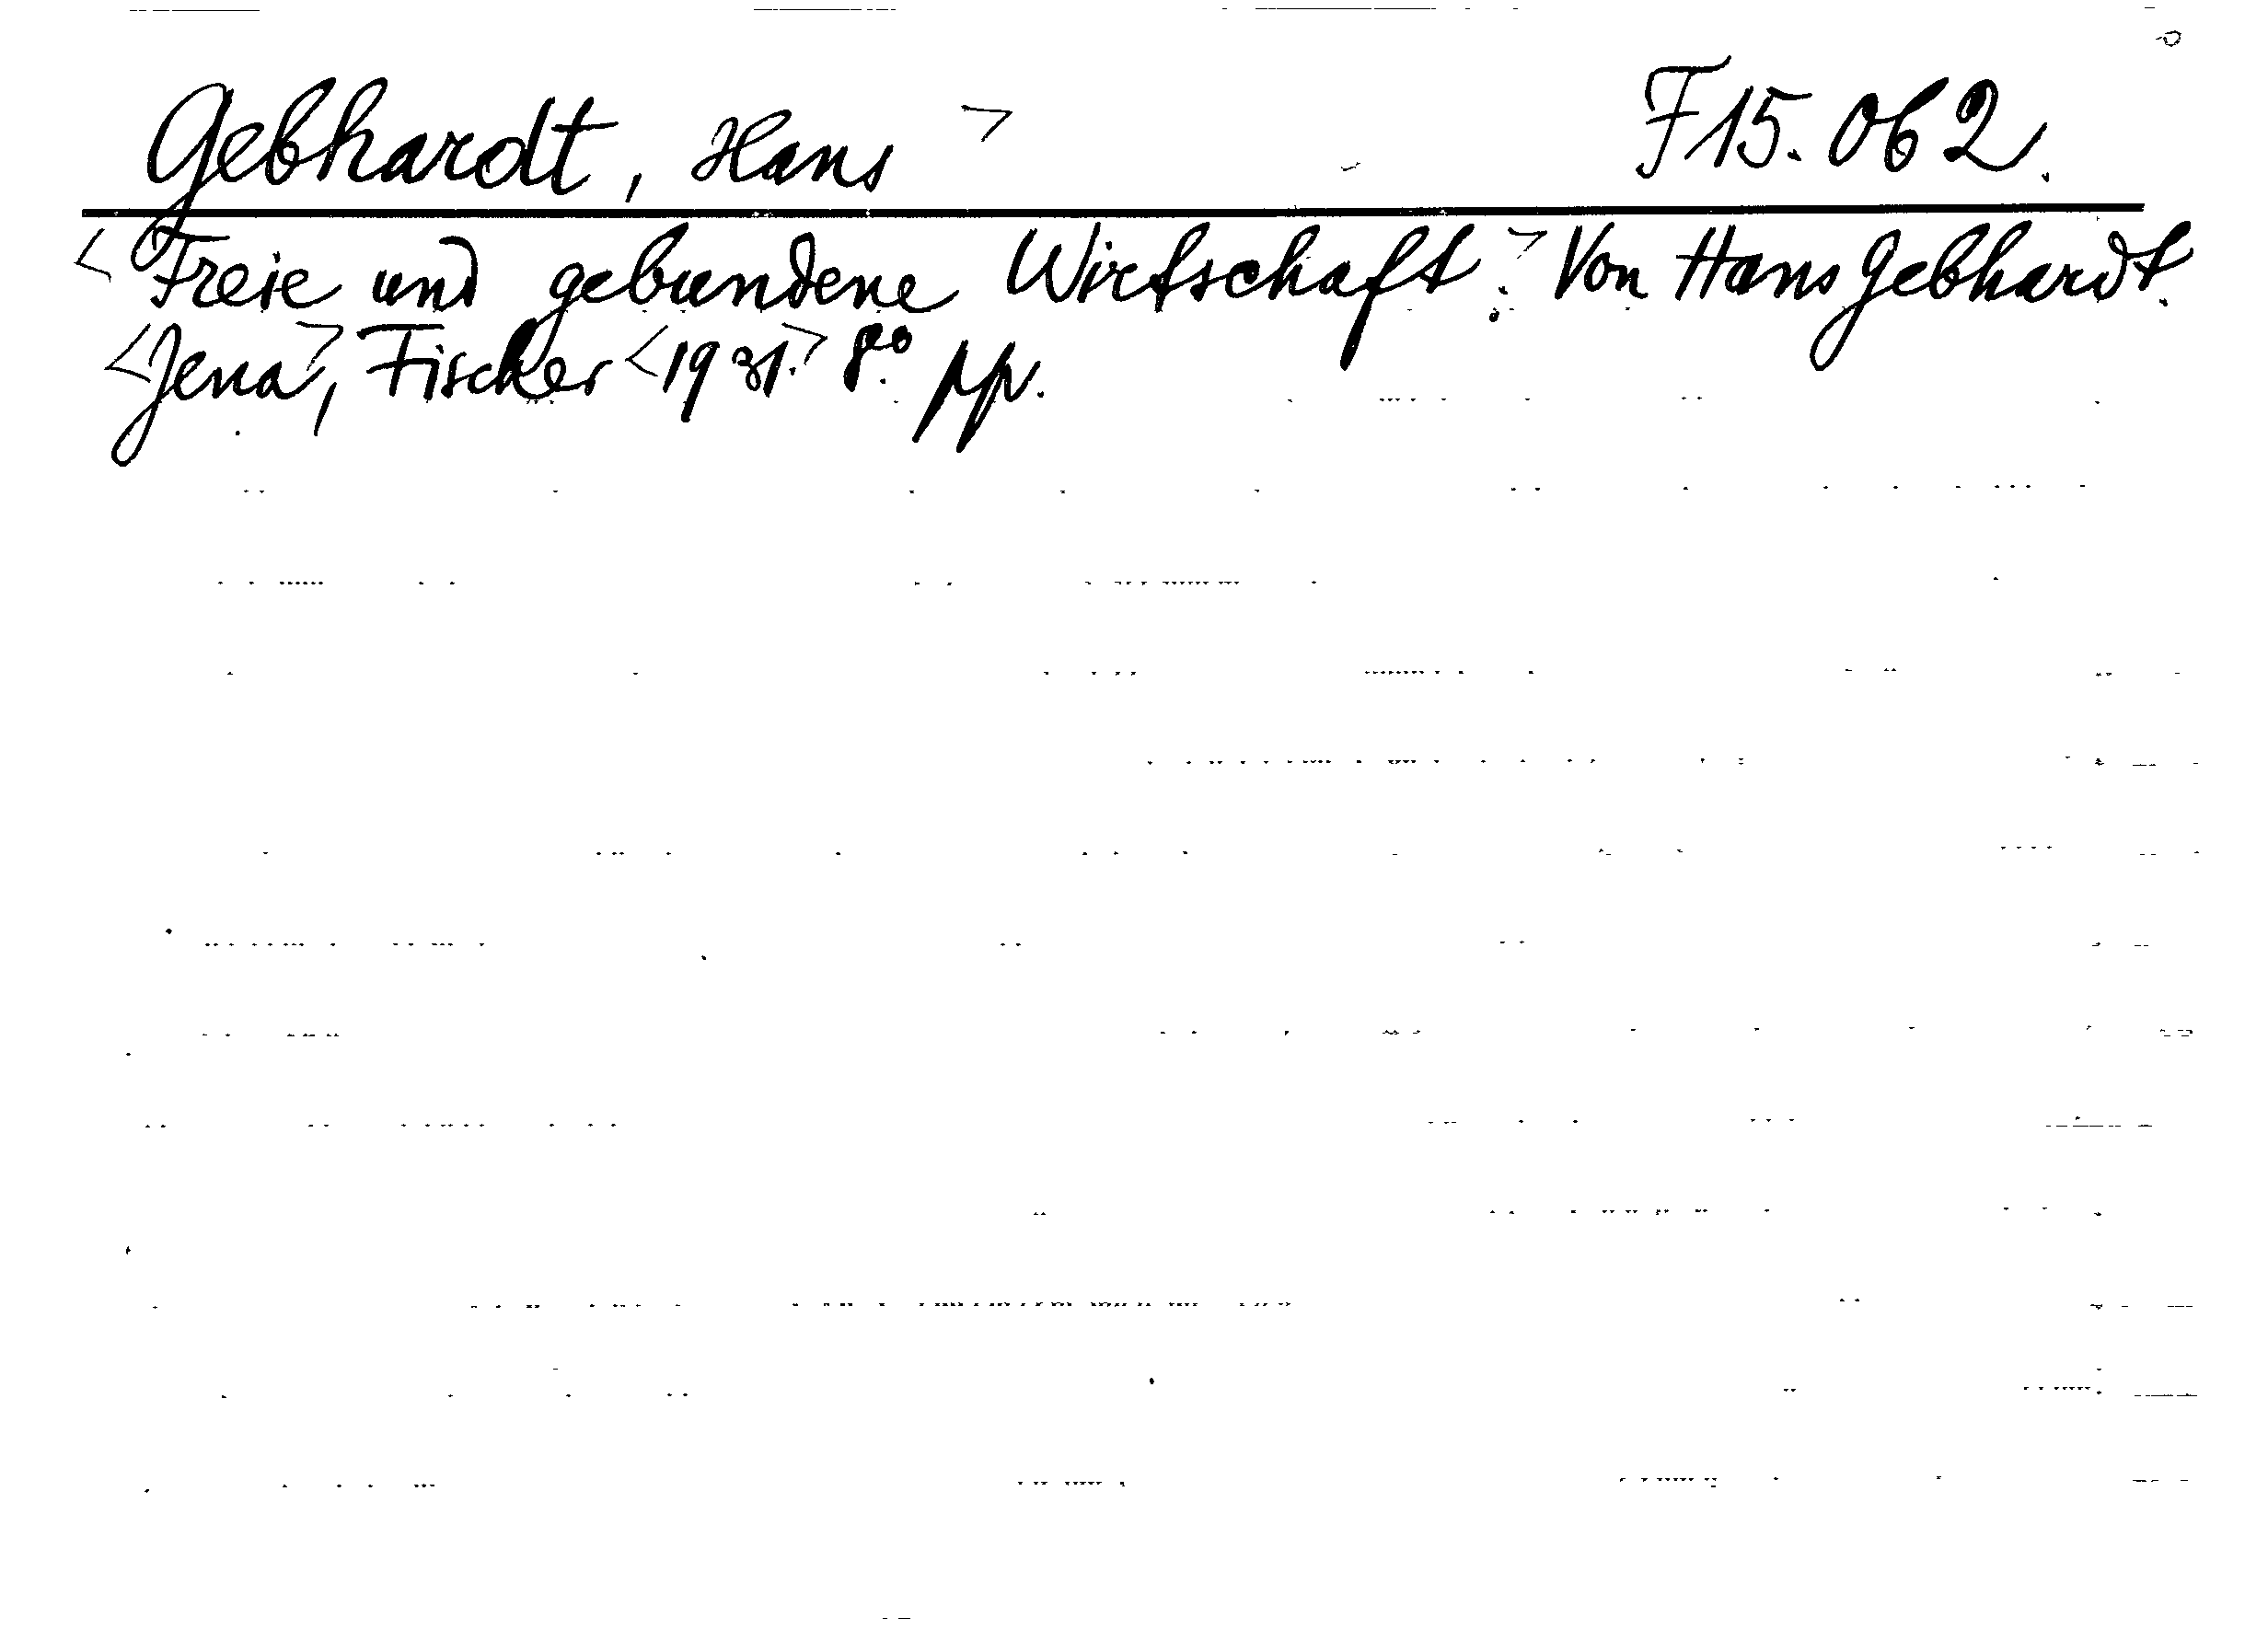 Gebhardt, Hans > F15.062.
<Freie und gebundene Wirtschaft.> Von Hans Gebhardt.
<Jena>, Fischer <1931.> 8.º pp.